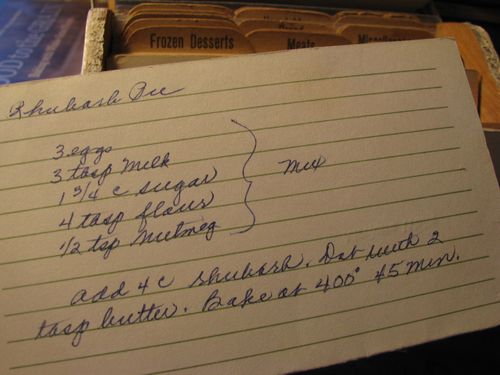 Frozen Desserts
Meats
Rhubarb Pie
3 eggs
3 tbsp Milk
1 3/4 c sugar
4 tbsp flour
1/2 tsp Nutmeg
Mix
add 4 c rhubarb. Dot with 2
tbsp butter. Bake at 400° 45 min.